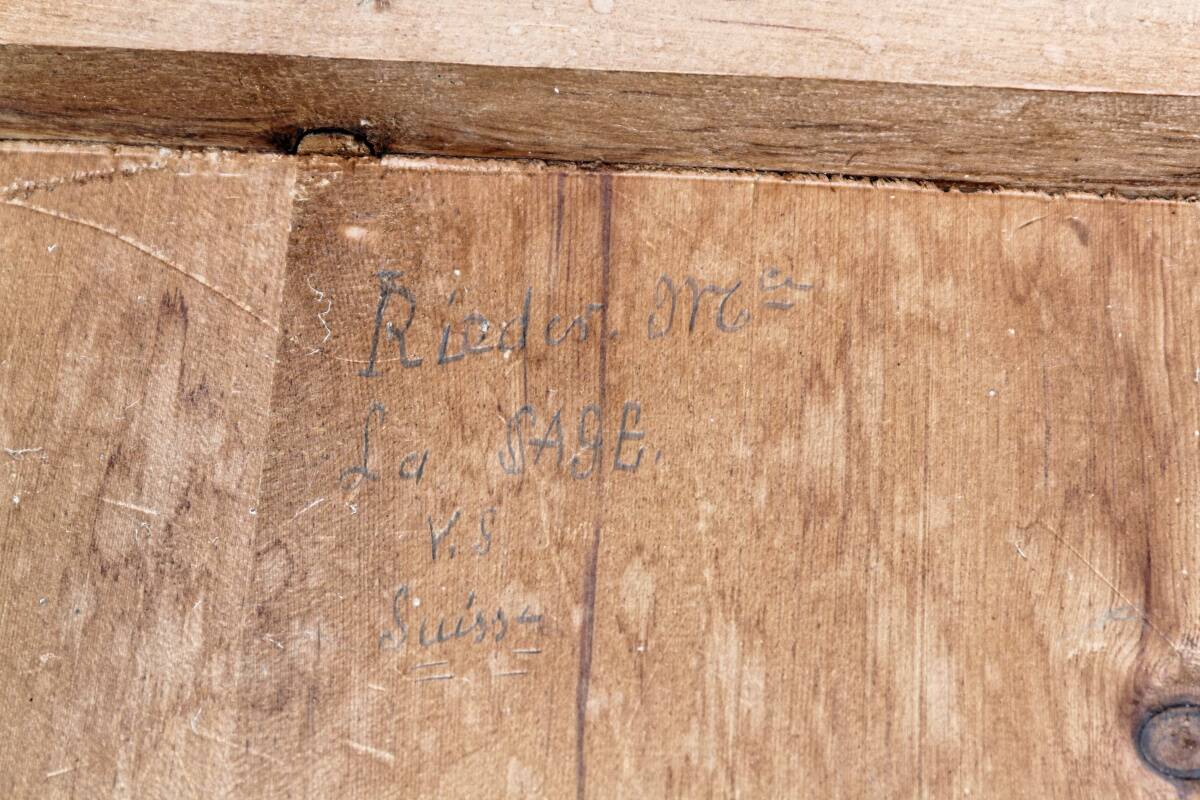 Rieder. Mce
La SAGE.
V.S
Suisse